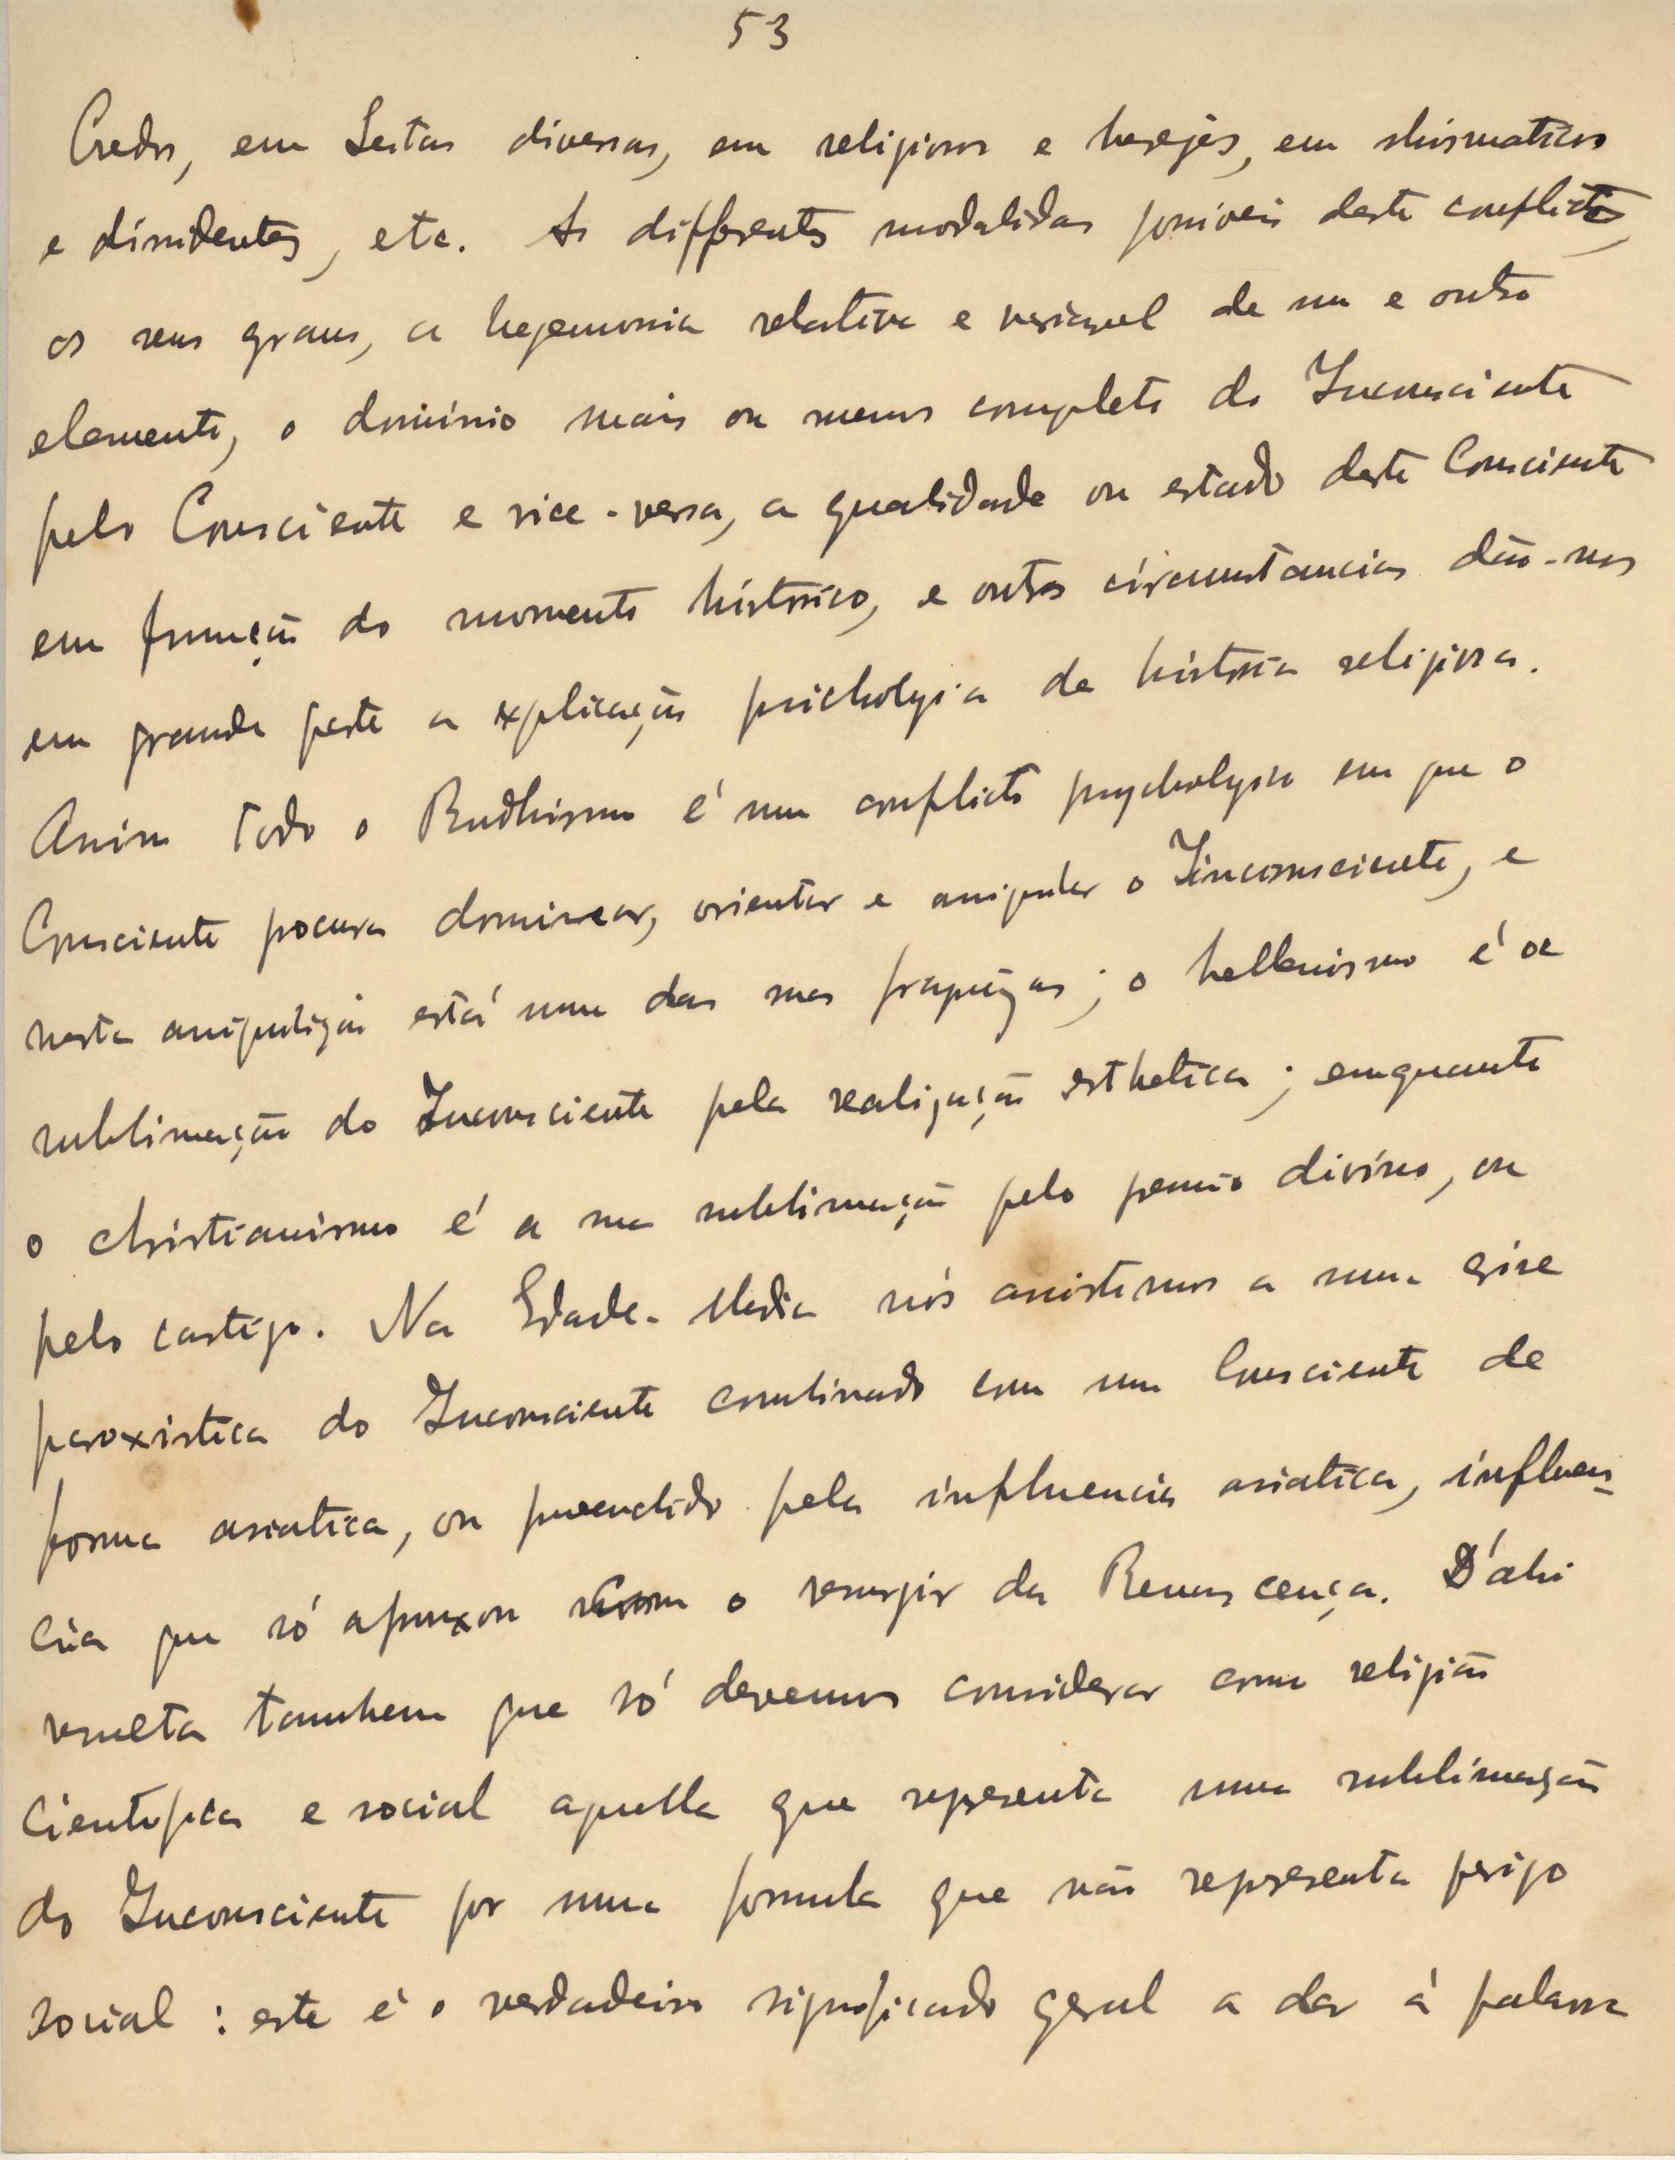 53
Credos, em Seitas diversas, em religiosos e herejes, em shismaticos
e dissidentes, etc. As differentes modalidas possiveis deste conflicto,
os seus graus, a hegemonia relativa e variavel de um e outro
elemento, o dominio mais ou menos completo do Inconsciente
pelo Consciente e vice-versa, a qualidade ou estado deste Consciente
em funcção do momento historico, e outras circumstancias dão-nos
em grande parte a explicação psichologia da historia religiosa.
Assim todo o Budhismo é um conflicto psychologico em que o
Consciente procura dominar, orientar e aniquilar o Iinconsciente, e
nesta aniquilição está uma das suas fraquezas; o hellenismo é a
sublimação do Inconsciente pela realização esthetica; emquanto
o christianismo é a sua sublimação pelo premio divino, ou
pelo castigo. Na Edade-Media nós assistimos a uma crise
paroxistica do Inconsciente combinado com um Consciente de
forma asiatica, ou preenchido pela influencia asiatica, influen-
cia que só afrouxou com o resurgir da Renascença. D'ahi
resulta tambem que só devemos considerar como religião
cientifica e social aquella que representa uma sublimação
do Inconsciente por uma formula que não representa perigo
social : este é o verdadeiro significado geral a dar á palavra